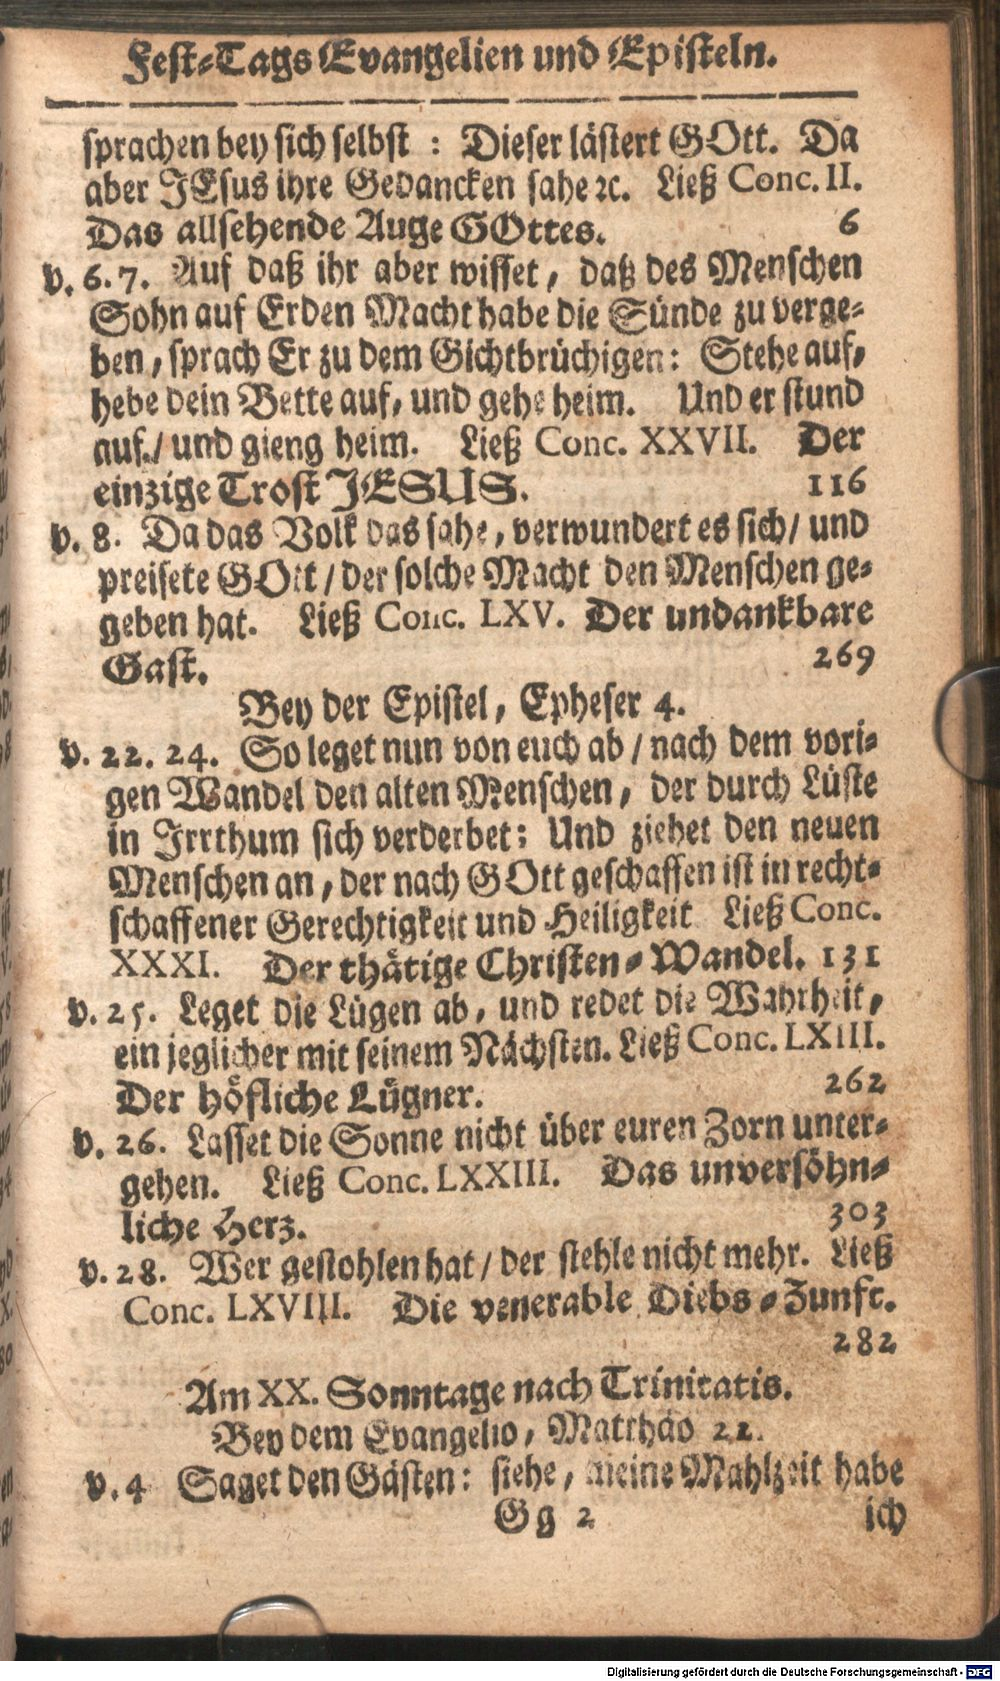 Fest-Tags Evangelien und Episteln.
sprachen bey sich selbst : Dieser lästert GOtt. Da
aber JEsus ihre Gedancken sahe ꝛc. Ließ Conc. II.
Das allsehende Auge GOttes. 6
v. 6. 7. Auf daß ihr aber wisset, daß des Menschen
Sohn auf Erden Macht habe die Sünde zu verge-
ben, sprach Er zu dem Gichtbrüchigen: Stehe auf,
hebe dein Bette auf, und gehe heim. Und er stund
auf./ und gieng heim. Ließ Conc. XXVII. Der
einzige Trost JESUS. 116
v. 8. Da das Volk das sahe, verwundert es sich/ und
preisete GOtt/ der solche Macht den Menschen ge-
geben hat. Ließ Conc. LXV. Der undankbare
Gast. 269
Bey der Epistel, Epheser 4.
v. 22. 24. So leget nun von euch ab/ nach dem vori-
gen Wandel den alten Menschen, der durch Lüste
in Irrthum sich verderbet: Und ziehet den neuen
Menschen an, der nach GOtt geschaffen ist in recht-
schaffener Gerechtigkeit und Heiligkeit Ließ Conc.
XXXI. Der thätige Christen-Wandel. 131
v. 25. Leget die Lügen ab, und redet die Wahrheit,
ein jeglicher mit seinem Nächsten. Ließ Conc. LXIII.
Der höfliche Lügner. 262
v. 26. Lasset die Sonne nicht über euren Zorn unter-
gehen. Ließ Conc. LXXIII. Das unversöhn-
liche Herz. 303
v. 28. Wer gestohlen hat/ der stehle nicht mehr. Ließ
Conc. LXVIII. Die venerable Diebs-Zunft.
282
Am XX. Sonntage nach Trinitatis.
Bey dem Evangelio, Matthäo 22.
v. 4 Saget den Gästen: siehe, meine Mahlzeit habe
Gg 2 ich
Digitalisierung gefördert durch die Deutsche Forschungsgemeinschaft - DFG